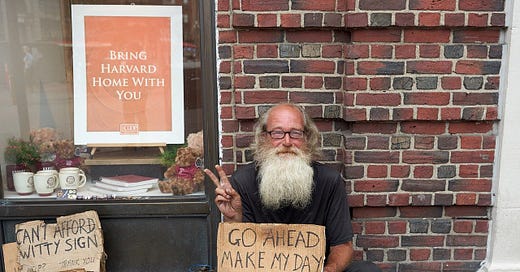 BRING
HARVARD
HOME WITH
YOU
CAN'T AFFORD
WITTY SIGN
THANK YOU
GO AHEAD
MAKE MY DAY